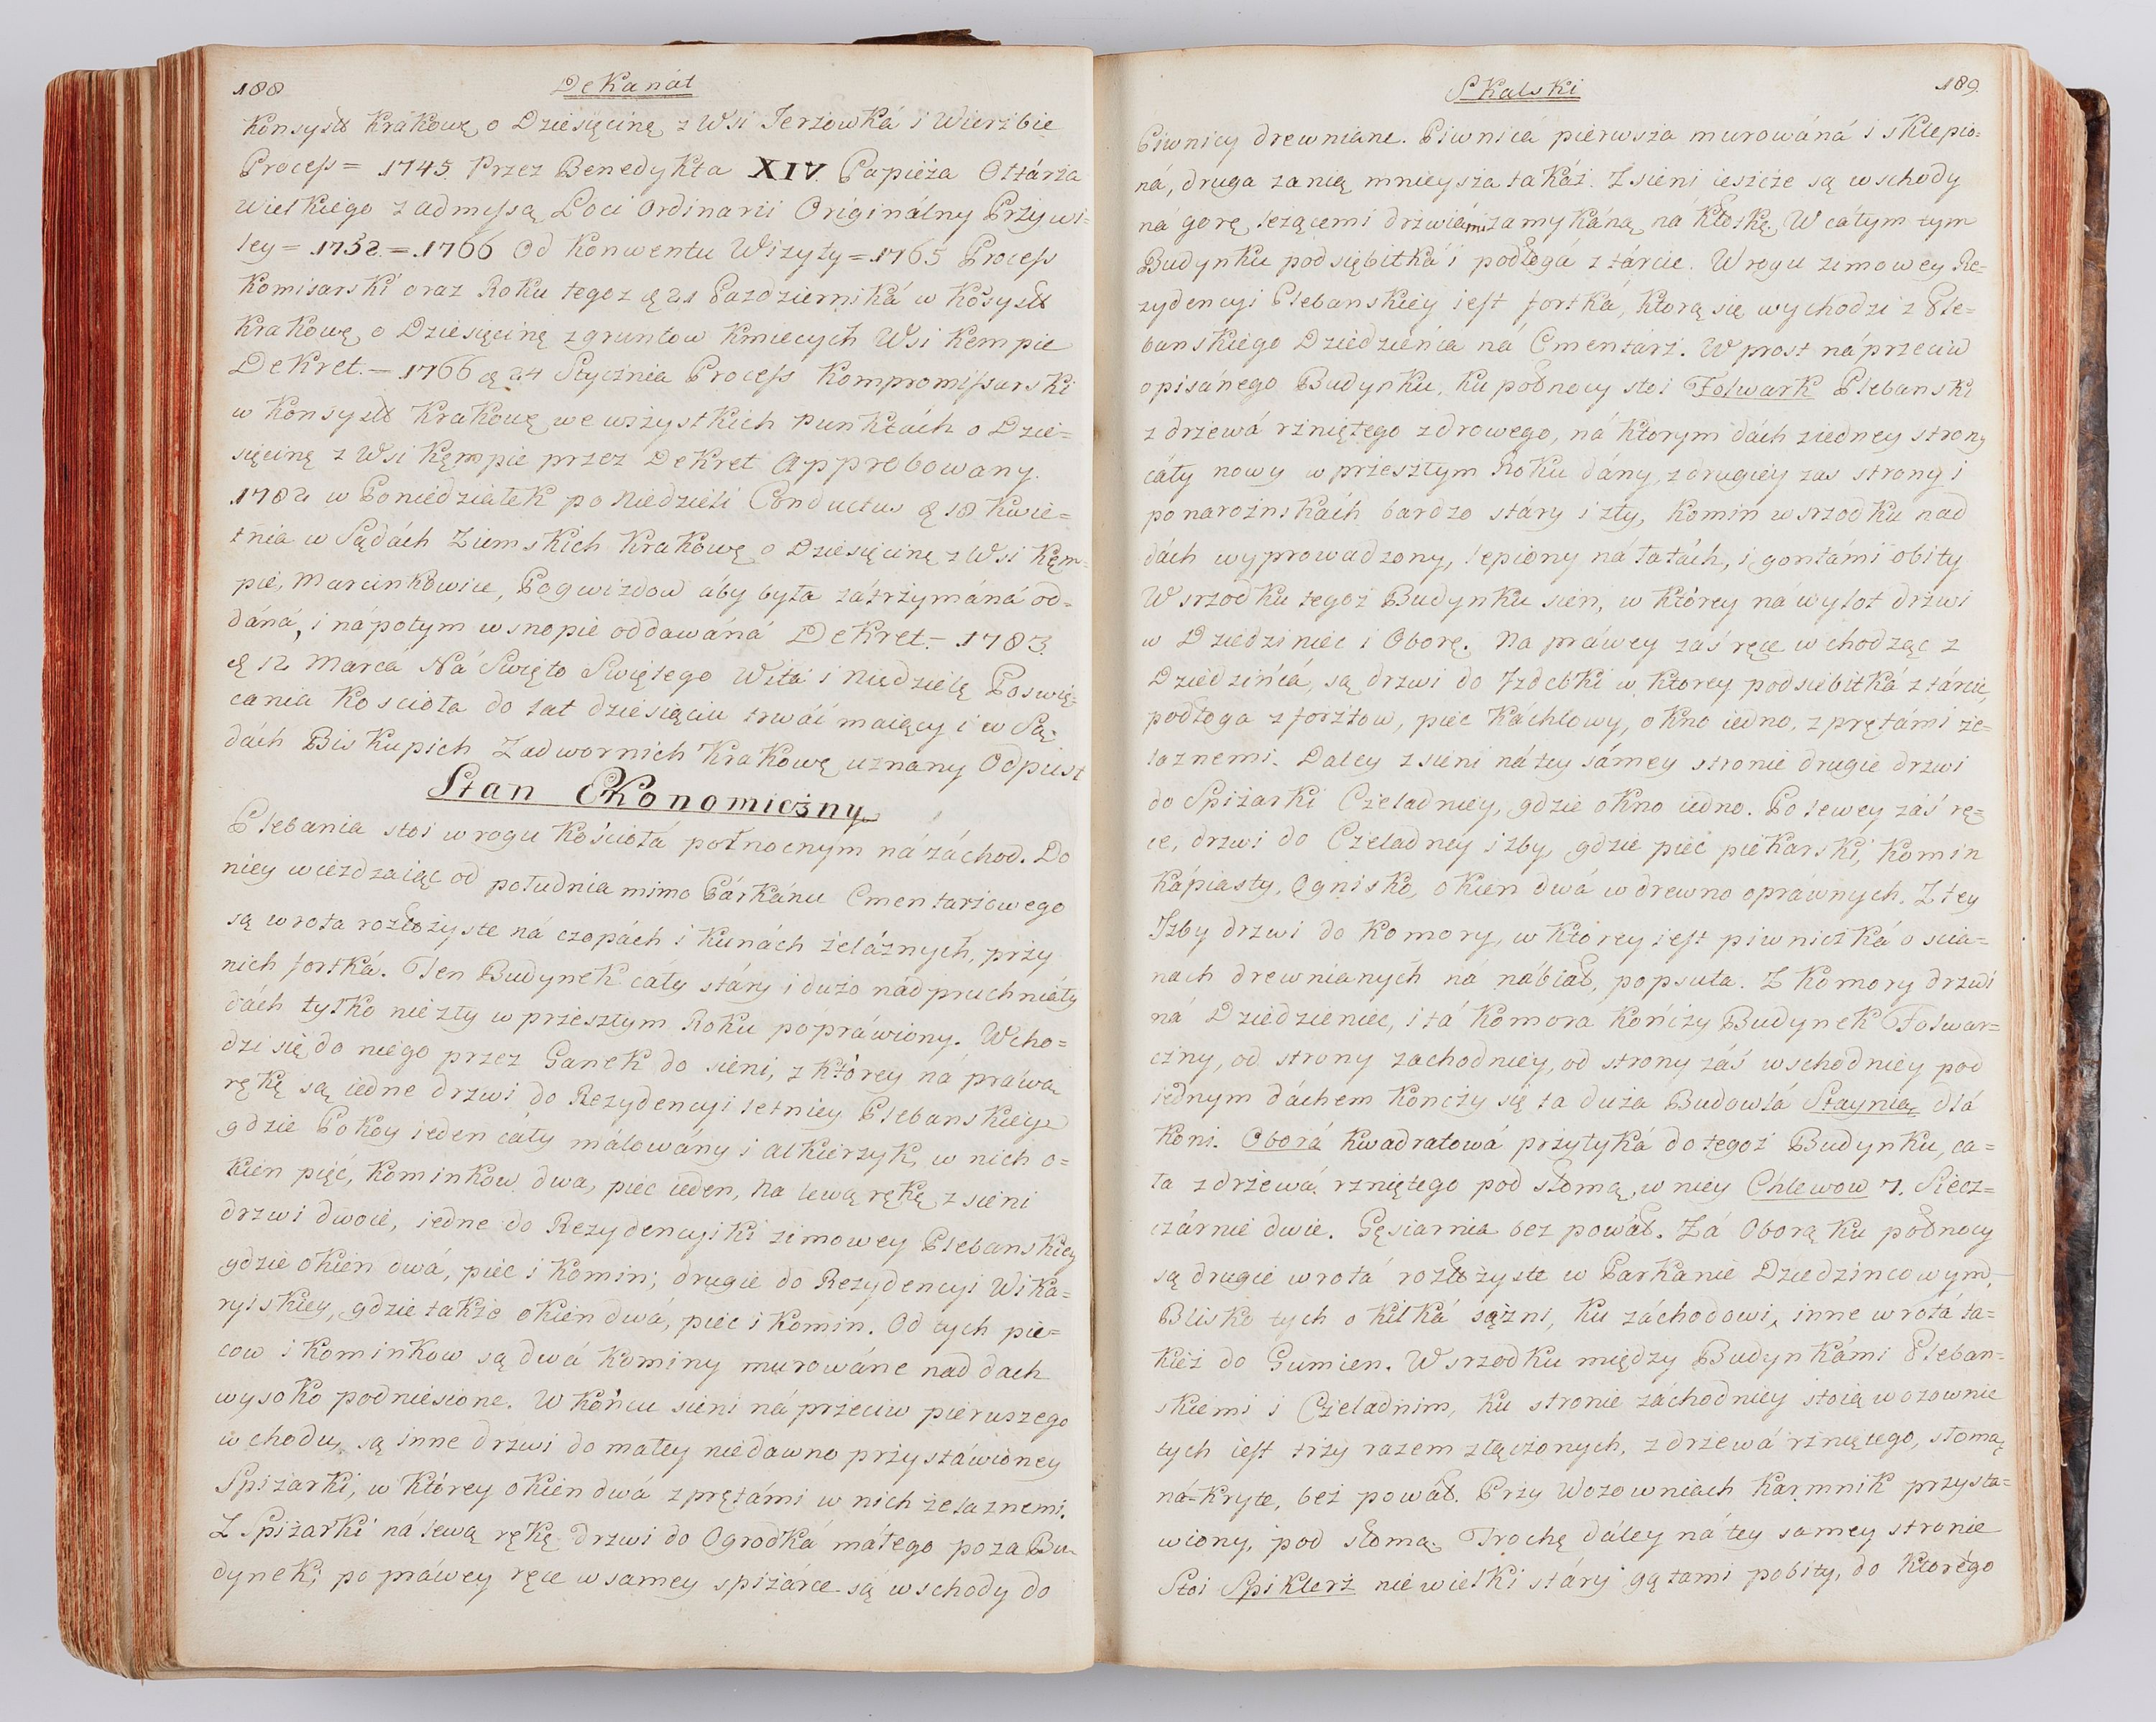 188
DeKanát
Konsystł Krákowę o Dziesięcinę z Wsi Jerzowká i Wierzbie
Process = 1745 Przez Benedykta XIV. Papieża Ołtárza
Wielkiego z admyssą Loci Ordinarii Originálny Przywi=
ley = 1752 = 1766 Od Konwentu Wizyty = 1765 Process
Komisarski oraz Roku tegoz 21 Pazdzierniká w Kosystł
Krakowę o Dziesięcinę z gruntow Kmiecych Wsi Kempie
DeKret. = 1766 24 Stycznia Process Kompromissarski
w Konsystł Krakowę we wszystkich Punktách o Dzie=
sięcinę z Wsi Kępie przez DeKret Approbowany.
1782 w Poniedziałek po Niedzieli Conductus 18 Kwie=
tnia w Sądách Ziemskich Krakowę o Dziesięcinę z Wsi Kęm=
pie, Marcinkowice, Pogwizdow áby była zátrzymáná od=
dáná, i nápotym w snopie oddawáná DeKret = 1783
12 Márcá Ná Swięto Swiętego Witá i Niedzielę Poswię=
cania Kosciołá do lat dziesięciu trwáć maiący i w Są=
dách Biskupich Zadwornich Krakowę uznany Odpust
Stan EKonomiczny
Plebania stoi w rogu Kościołá połnocnym ná záchod. Do
niey wieżdzaiąc od południa mimo Párkánu Cmentarzowego
są wrota rozłożyste ná czopách i Kunách żeláznych, przy
nich fortká. Ten Budynek cáły stáry i dużo nádpruchniáły
dách tylko niezły w przeszłym Roku popráwiony. Wcho=
dzi się do niego przez Ganek do sieni, z którey ná práwą
rękę są iedne drzwi do Rezydencyi letniey Plebanskiey
gdzie Pokoy ieden cáły málowány i alkierzyk, w nich o=
kien pięć, Kominkow dwa, piec ieden, Na lewą rękę z sieni
drzwi dwoie, iedne do Rezydencyiki zimowey Plebanskiey
gdzie okien dwá, piec i Komin; drugie do Rezydencyi Wika=
ryiskiey, gdzie także okien dwá, piec i Komin. Od tych pie=
cow i Kominkow są dwá Kominy murowáne nad dach
wysoko podniesione. W Końcu sieni náprzeciw pierwszego
wchodu, są inne drzwi do małey niedawno przystáwioney
Spiżarki, w którey okien dwá z prętámi w nich żelaznemi.
Z Spiżarki ná lewą rękę drzwi do Ogrodká máłego poza Bu=
dynek; po práwey ręce w samey spiżárce są wschody do
Skalski
189
Piwnicy drewniane. Piwnicá pierwsza murowáná i sklepio=
ná, druga zanią mnieysza takáż. Z sieni ieszcze są wschody
ná gorę leżącemi drzwiámi zamykáną ná Kłoskę. W cáłym tym
Budynku podsiębitká i podłogá z tárcie. W rogu zimowey Re=
zydencyi Plebanskiey iest fortká, Ktorą się wychodzi z Ple=
banskiego Dziedzieńca ná Cmentárz. W prost náprzeciw
opisánego Budynku, ku połnocy stoi Folwark Plebanski
z drzewá rzniętego zdrowego, ná Ktorym dách ziedney strony
cáły nowy w przeszłym Roku dány, z drugiey zas strony i
ponarożnikách bardzo stáry i zły, Komin wsrzodku nad
dách wyprowadzony, lepiony ná łatách, i gontámi obity
W srzodku tegoż Budynku sień, w którey ná wylot drzwi
w Dziedziniec i Oborę. Na práwey záś ręce wchodząc z
Dziedzińcá, są drzwi do Jzdebki w Ktorey podsiebitká z tárcic,
podłoga z forsztow, piec Káchlowy, okno iedno, z prętámi że=
laznemi. Daley z sieni ná tey sámey stronie drugie drzwi
do Spiżarki Czeladniey, gdzie okno iedno. Po lewey záś rę=
ce, drzwi do Czeladney izby, gdzie piec piekarski, Komin
Kápiasty, Ognisko, okien dwá w drewno opráwnych. Z tey
Jzby drzwi do Komory, w Którey iest piwniczká o scia=
nach drewnianych ná nábiał, popsuta. Z Komory drzwi
ná Dziedzieniec, i tá Komora Kończy Budynek Folwar=
czny, od strony zachodniey, od strony záś wschodniey pod
iednym dáchem Kończy się ta duża Budowlá Staynią dlá
Koni. Oborá Kwadratowá przytyká do tegoż Budynku, ca=
ła z drzewá rzniętego pod słomą, w niey Chlewow 7. Siecz=
czárnie dwie. Gęsiarnia bez powáł. Zá Oborą ku połnocy
są drugie wrotá rozłożyste w Parkanie Dziedzincowym,
Blisko tych o kilká sążni, ku záchodowi, inne wrotá ta=
kież do Gumien. W srzodku między Budynkámi Pleban=
skiemi i Czeladnim, ku stronie záchodniey stoią wozownie
tych iest trzy razem złączonych, z drzewá rzniętego, słomą
ná=kryte, beż powáł. Przy Wozowniach Karmnik przysta=
wiony, pod słomą. Trochę dáley ná tey samey stronie
Stoi Spiklerz niewielki stáry gątami pobity, do Ktorégo